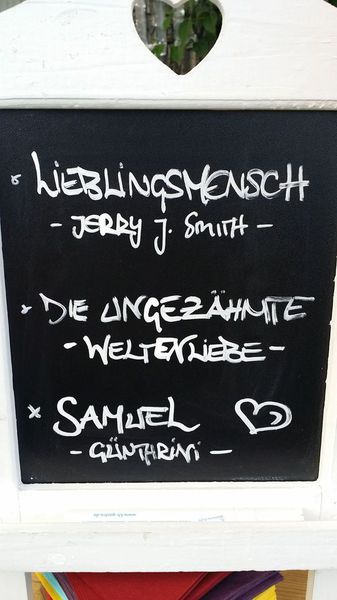 LIEBLINGSMENSCH
- JERRY J. SMITH -
DIE UNGEZÄHMTE
- WELTENLIEBE -
x SAMUEL
- GÜNTARINI -